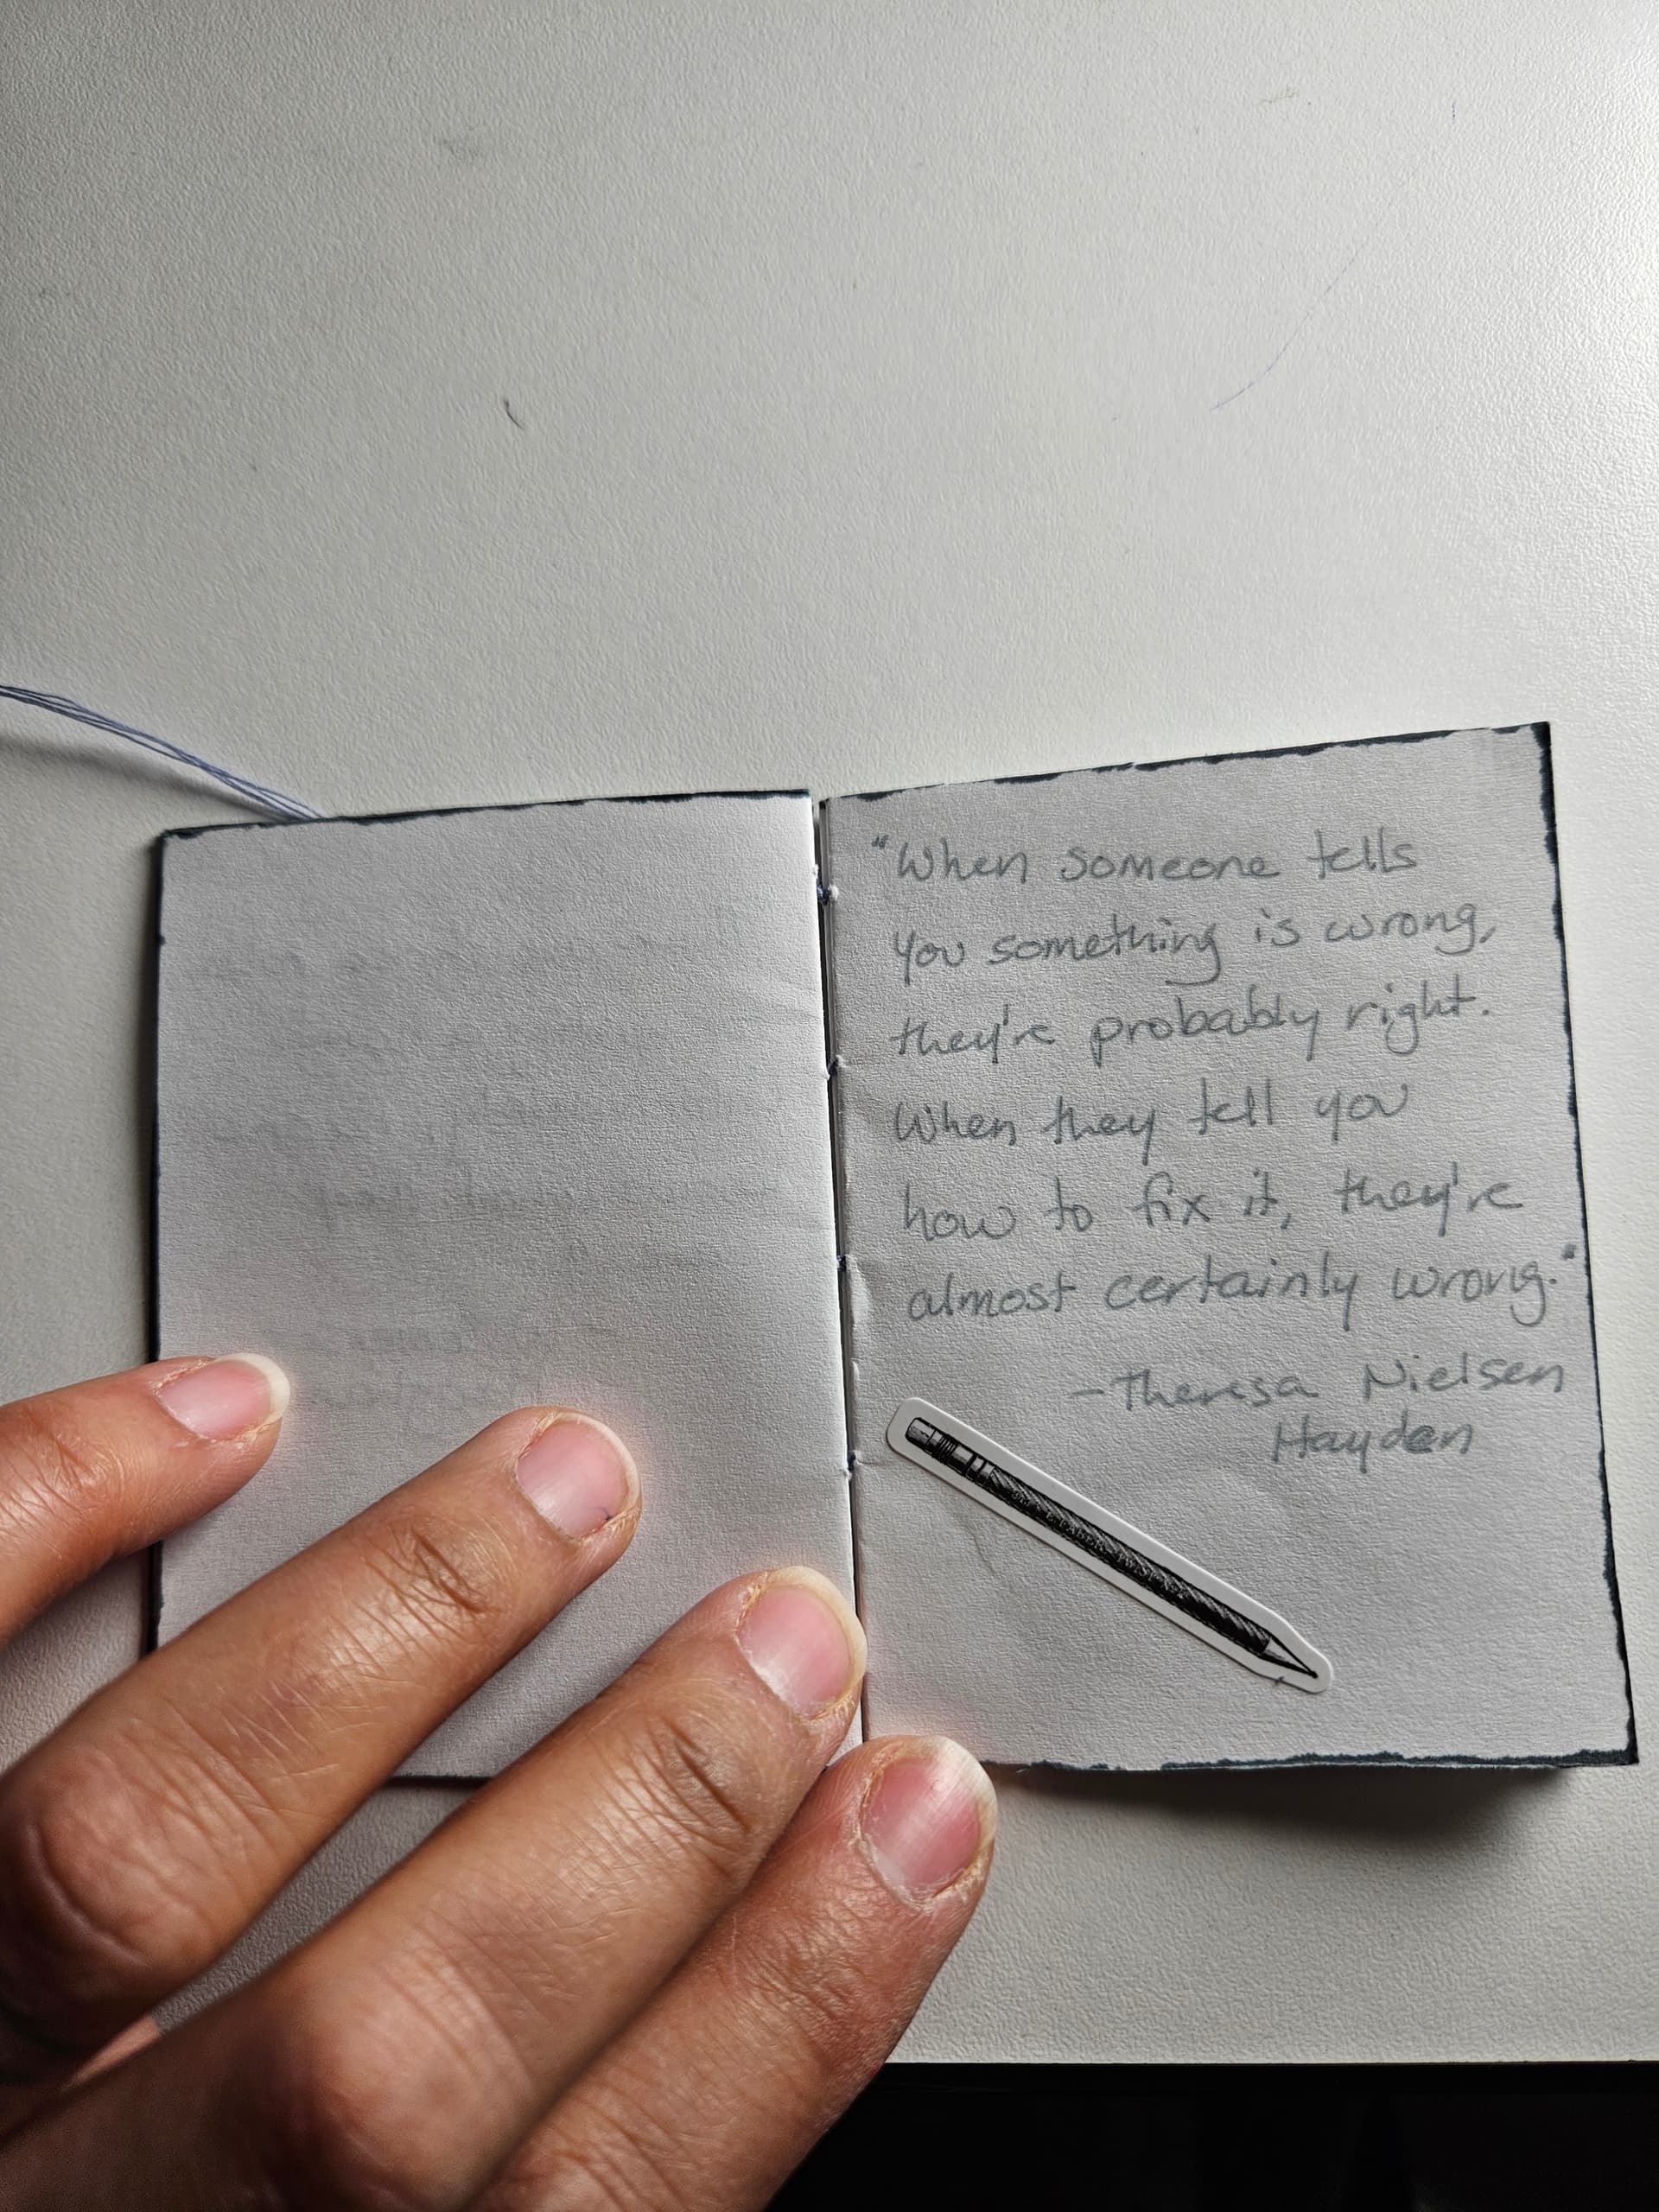 "When someone tells
you something is wrong,
they're probably right.
When they tell you
how to fix it, they're
almost certainly wrong."
-Theresa Nielsen
Hayden